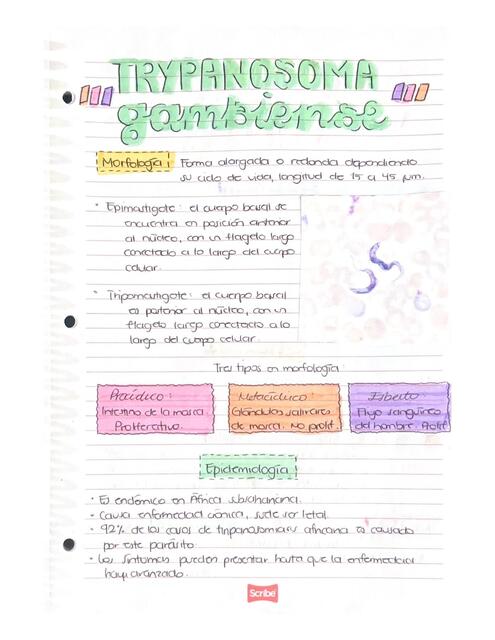 TRYPANOSOMA
gambiense
Morfología: Forma alargada o redonda dependiendo
su ciclo de vida, longitud de 15 a 45 µm.
• Epimastigote: el cuerpo basal se
encuentra en posición anterior
al núcleo, con un flagelo largo
conectado a lo largo del cuerpo
celular.
• Tripomastigote: el cuerpo basal
es posterior al núcleo, con un
flagelo largo conectado a lo
largo del cuerpo celular.
Tres tipos en morfología:
Procíclico:
Intestino de la mosca
Proliferativo.
Metacíclico:
Glándulas salivares
de mosca. No prolif.
Esbelto
Flujo sanguíneo
del hombre. Prolif.
Epidemiología
• Es endémico en África subsahariana.
• Causa enfermedad crónica, suele ser letal.
• 92% de los casos de tripanosomiasis africana es causado
por este parásito.
• Los síntomas pueden presentar hasta que la enfermedad
haya avanzado.
Scribe